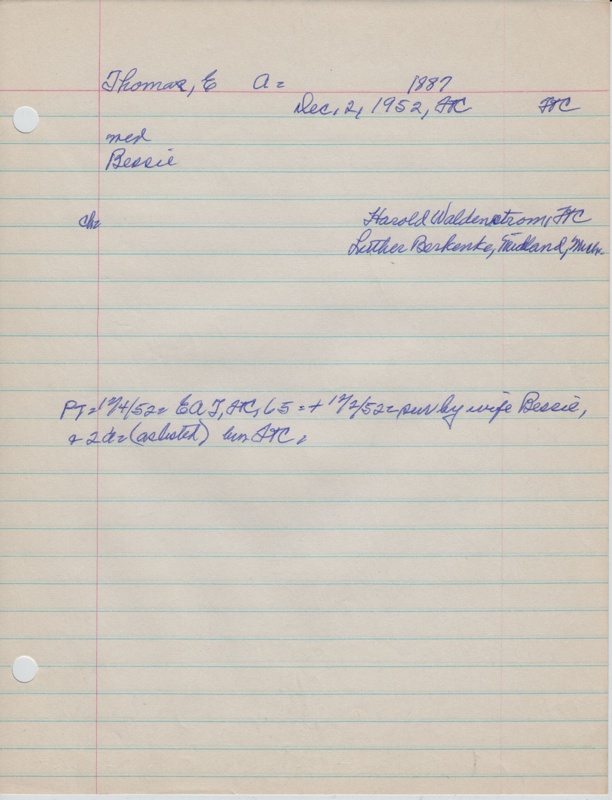 Thomas, E A = 1887
Dec, 2, 1952, FTC FTC
med
Bessie
ch= Harold Waldenstrom, FTC
Luther Berkenke, Midland, Mich.
PT=12/4/52= E A T, FTC, 65 = + 12/2/52= surv by wife Bessie,
+ 2 d= (as listed) bur FTC.